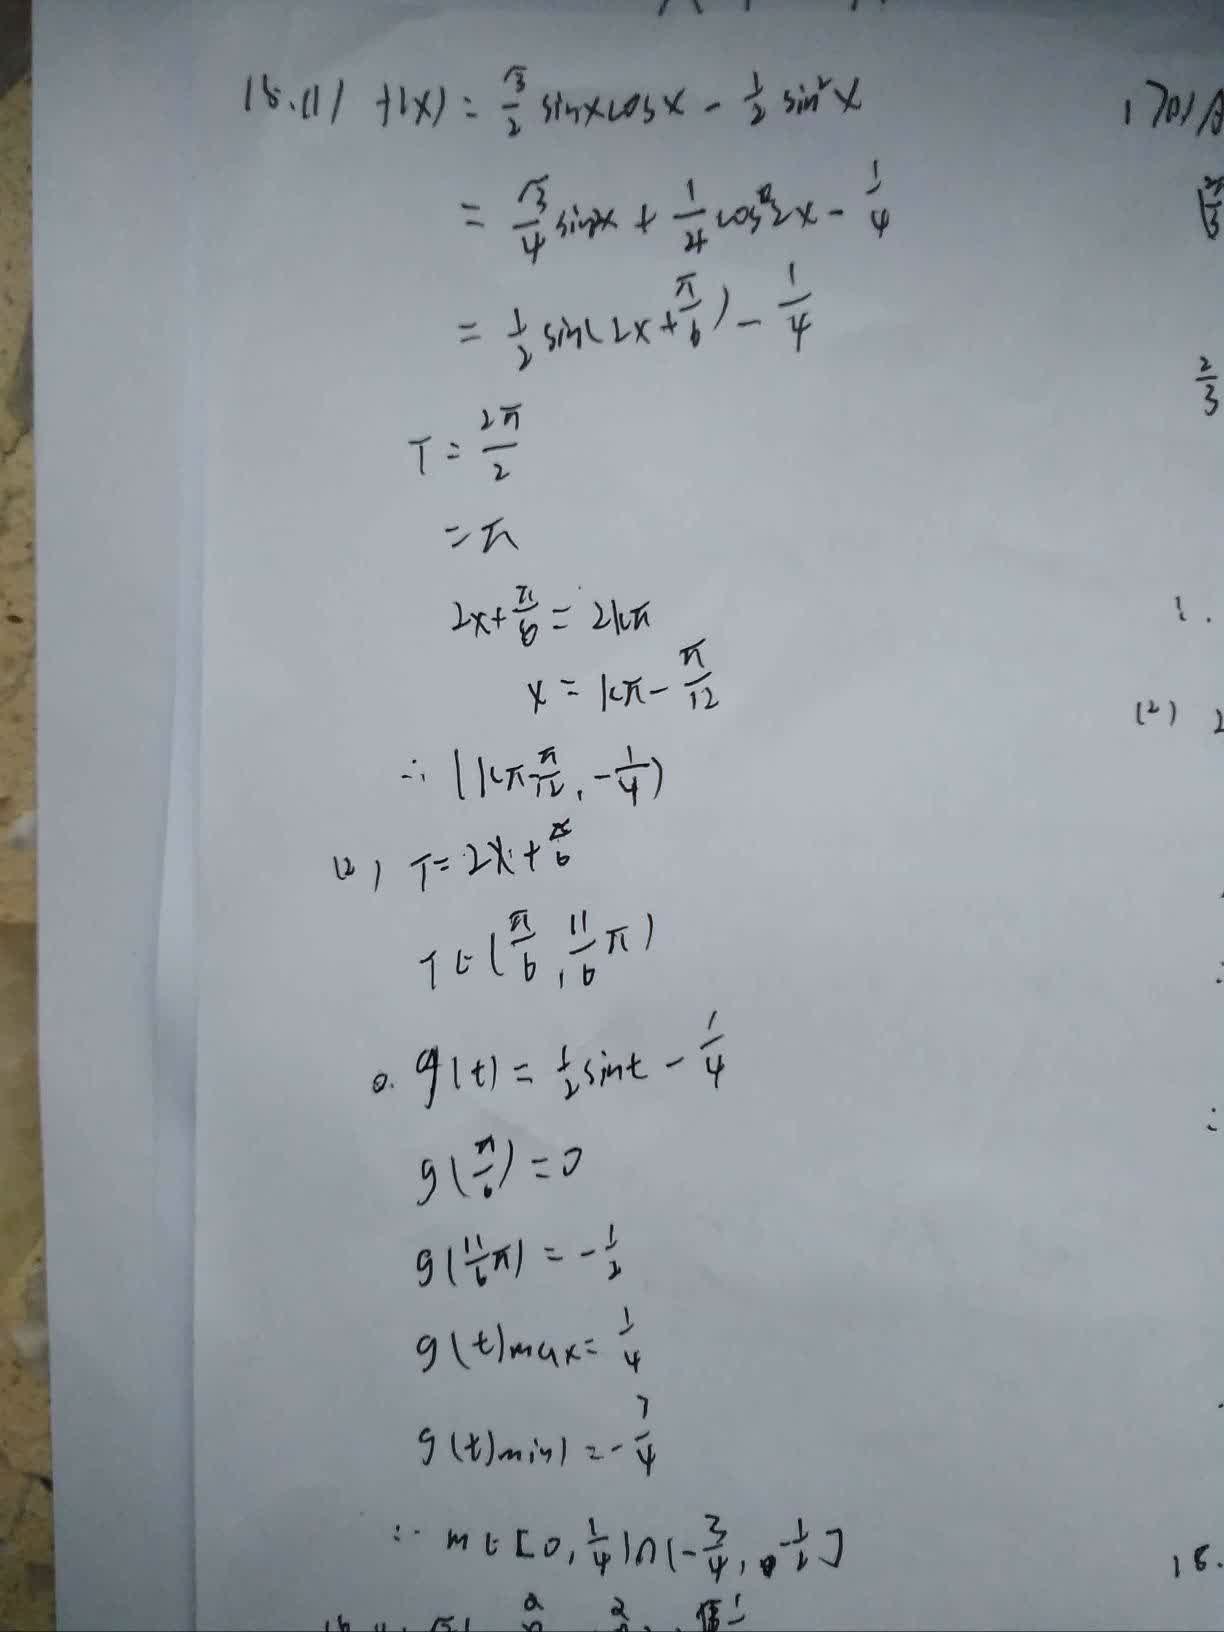 18.(1) f(x) = √3/2 sinxcosx - 1/2 sin²x
= √3/4 sin2x + 1/4 cos2x - 1/4
= 1/2 sin(2x + π/6) - 1/4
T = 2π/2
= π
2x + π/6 = 2kπ
x = kπ - π/12
∴ (kπ - π/12, -1/4)
(2) T = 2x + π/6
T ∈ (π/6, 11/6 π)
g(t) = 1/2 sint - 1/4
g(π/6) = 0
g(11/6 π) = -1/2
g(t)max = 1/4
g(t)min) = -3/4
∴ m ∈ [0, 1/4) ∩ (-3/4, -1/2]
17(1)
2/3
1.
(2) 2
18.